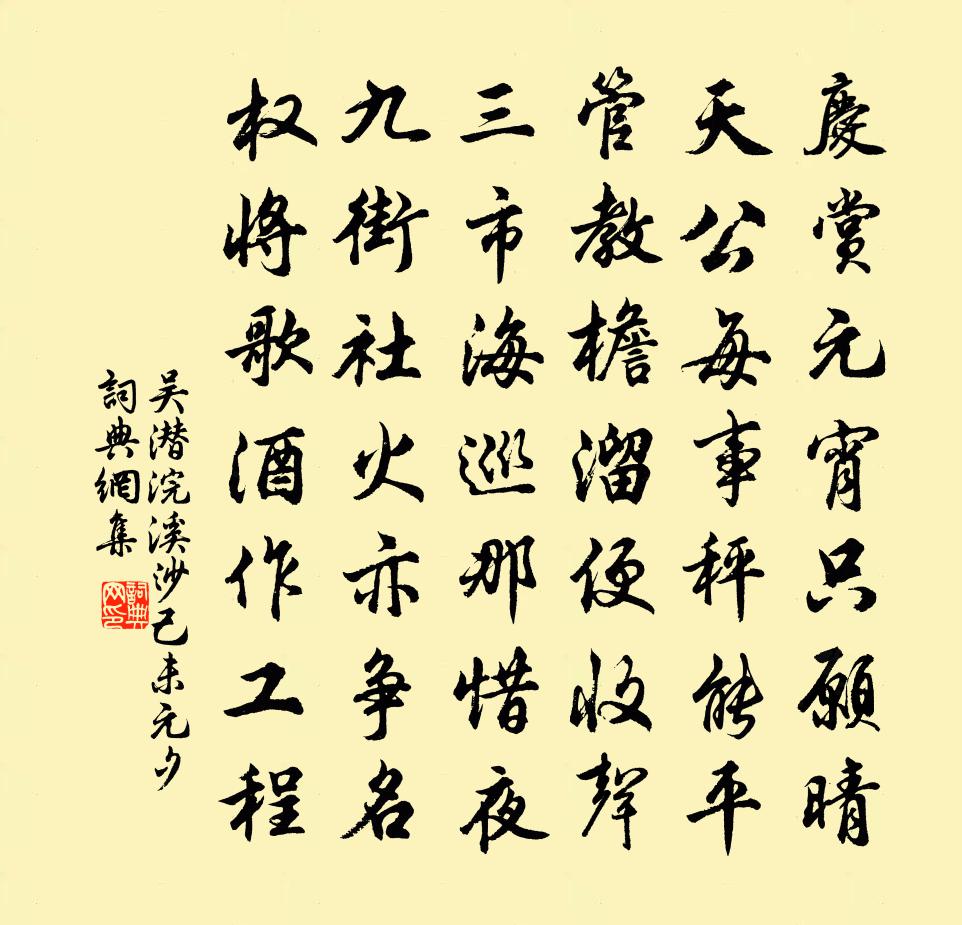 慶賞元宵只願晴
天公每事秤能平
管教檐溜便收聲
三市海巡那惜夜
九街社火亦争名
权將歌酒作工程
吴潜浣溪沙己未元夕
詞典網集
詞典網印